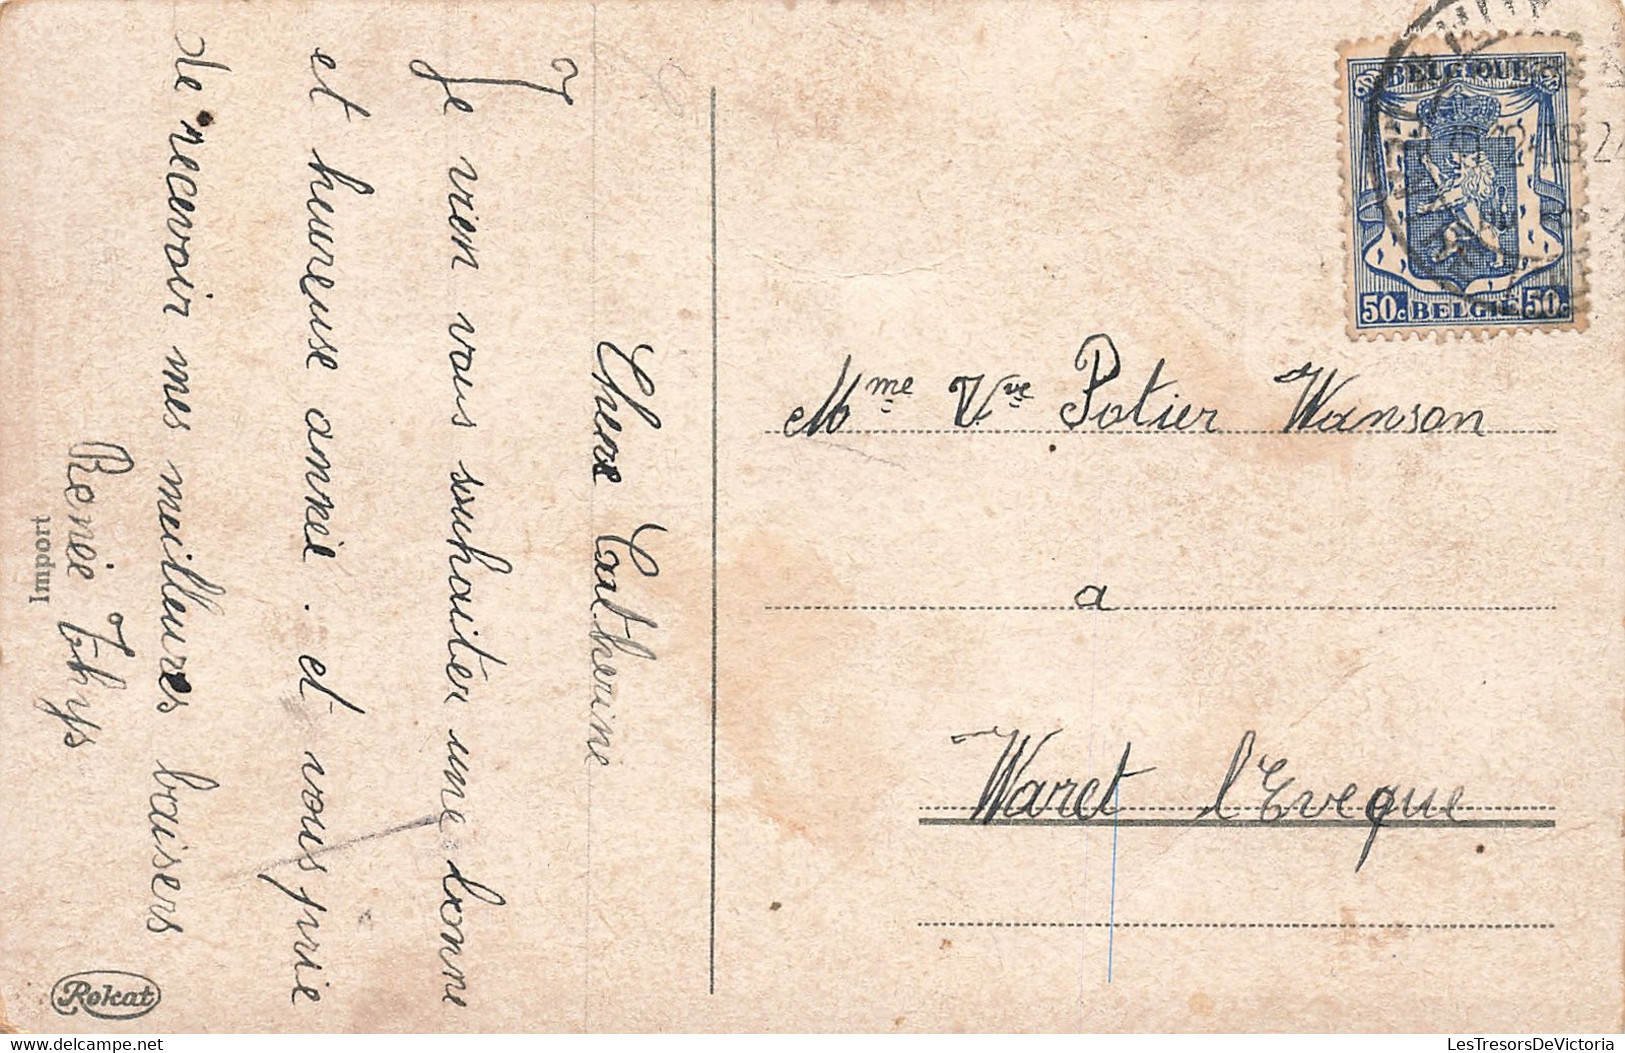 Chere Catherine
Je vien vous souhaiter une bonne
et heureuse année. et vous prie
de recevoir mes meilleures baisers
Renée Thys
Import
Rokat
BELGIQUE
50c BELGIE 50c
Mme Vve Potier Wanson
a
Waret l'Eveque
www.delcampe.net
LesTresorsDeVictoria